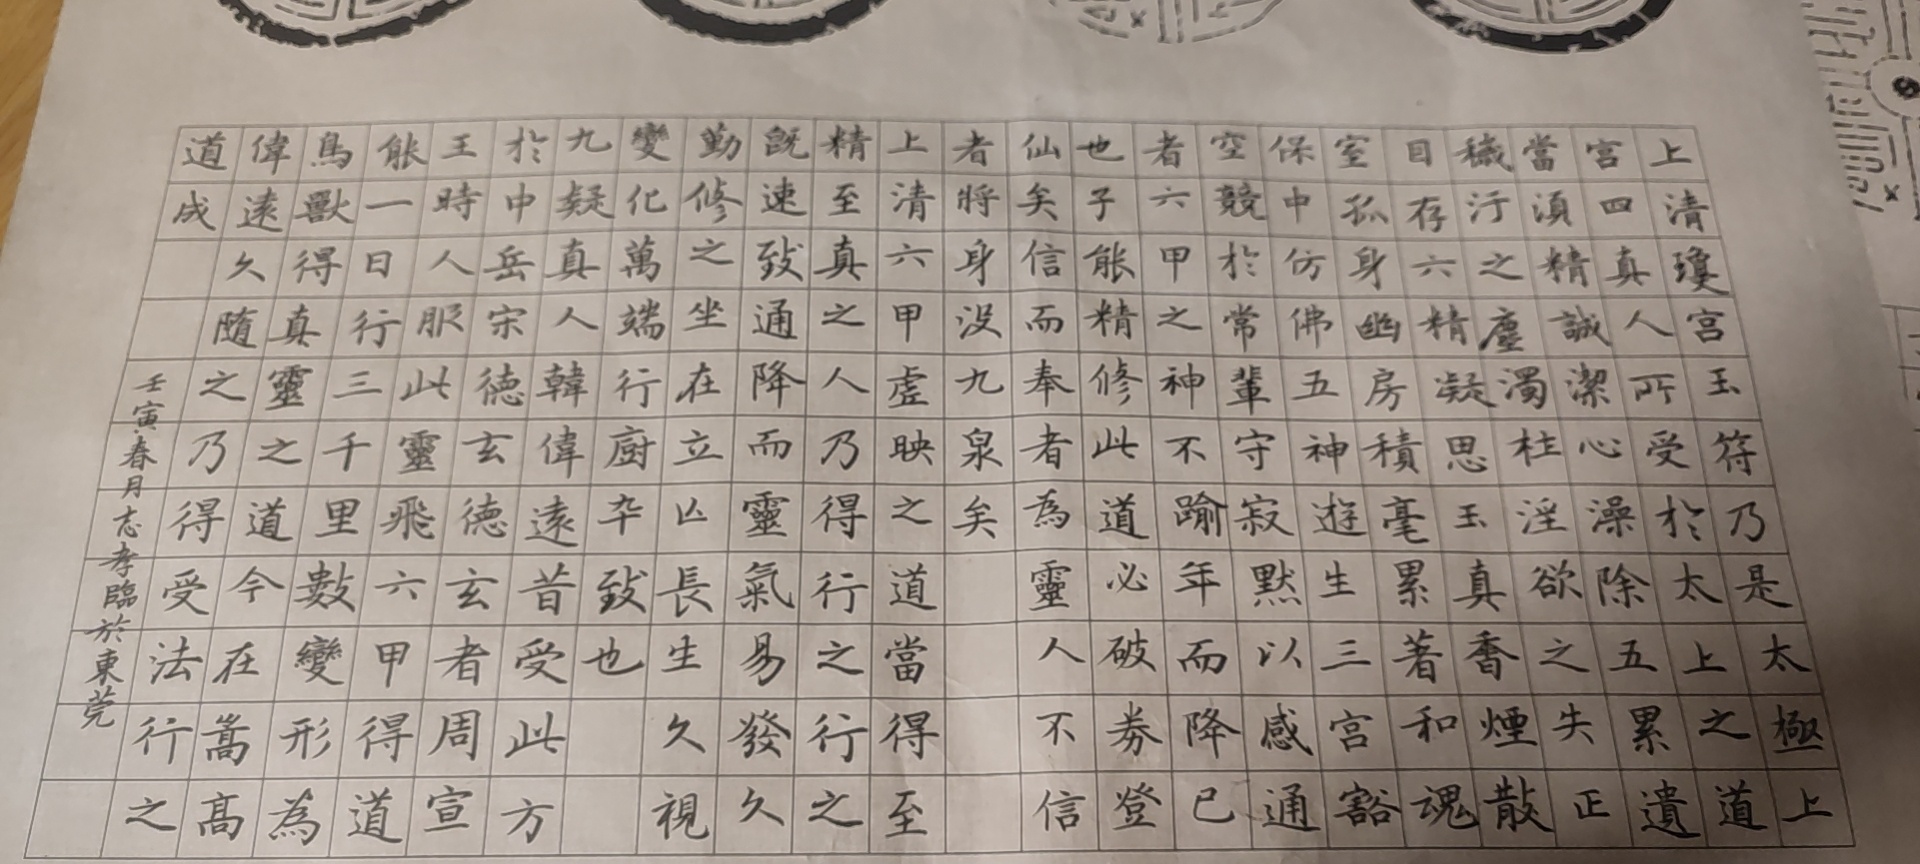 上清瓊宮玉符乃是太極上
宮四真人所受於太上之道
當須精誠潔心澡除五累遺
穢汙之塵濁杜淫欲之失正
目存六精凝思玉真香煙散
室孤身幽房積毫累著和魂
保中仿佛五神遊生三宮豁
空競於常輩守寂默以感通
者六甲之神不踰年而降已
也子能精修此道必破券登
仙矣信而奉者為靈人不信
者將身没九泉矣
上清六甲虛映之道當得至
精至真之人乃得行之行之
既速致通降而靈氣易發久
勤修之坐在立亡長生久視
變化萬端行厨卒致也
九疑真人韓偉遠昔受此方
於中岳宋德玄德玄者周宣
王時人服此靈飛六甲得道
能一日行三千里數變形為
鳥獸得真靈之道今在嵩高
偉遠久隨之乃得受法行之
道成
壬寅春月志孝臨於東莞